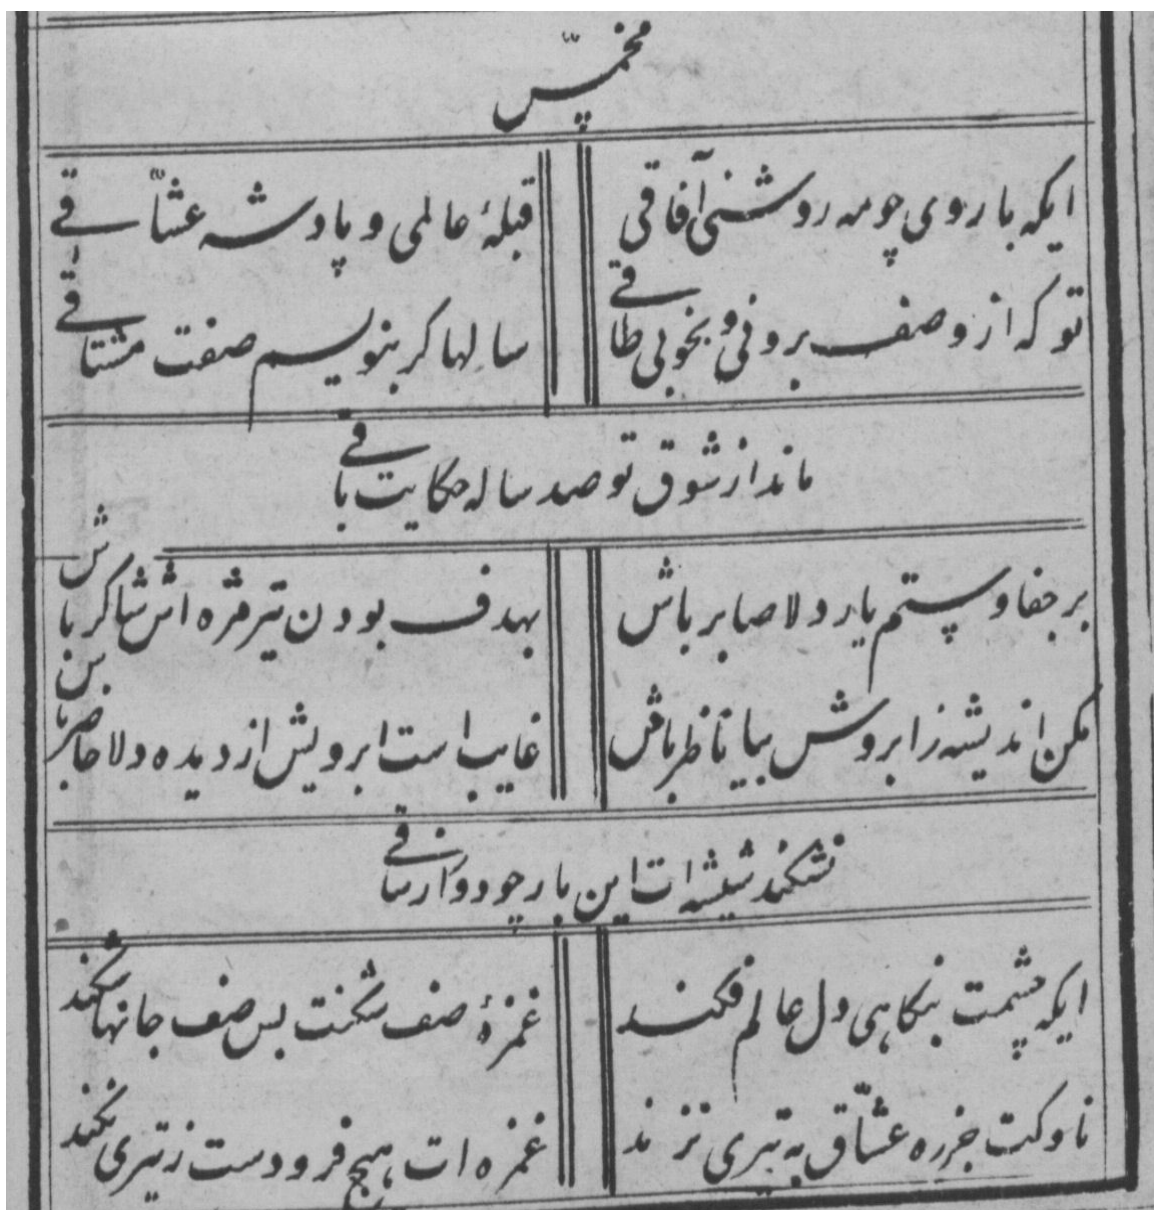 مخمّس
ایکه با روی چو مه روشنی آفاقی قبلهٔ عالمی و پادشه عشّاقے
تو که از وصف برونی و بخوبی طاقے سالها کر بنویسم صفت مشتاقے
ماند از شوق تو صد ساله حکایت باقے
بر جفا و ستم یار دلا صابر باش بهدف بودن تیر مژه اش شاکر باش
مکن اندیشه ز ابروش بیا ناظر باش غایب است ابرویش از دیده دلا حاضر باش
نشکند شیشه ات این بار چو دور از ساقے
ایکه چشمت بنکاهی دل عالم فکند غمزهٔ صف شکنت بس صف جانها شکند
ناوکت جز ره عشّاق به تیری نزند غمزه ات هیچ فرو دست ز تیری نکند